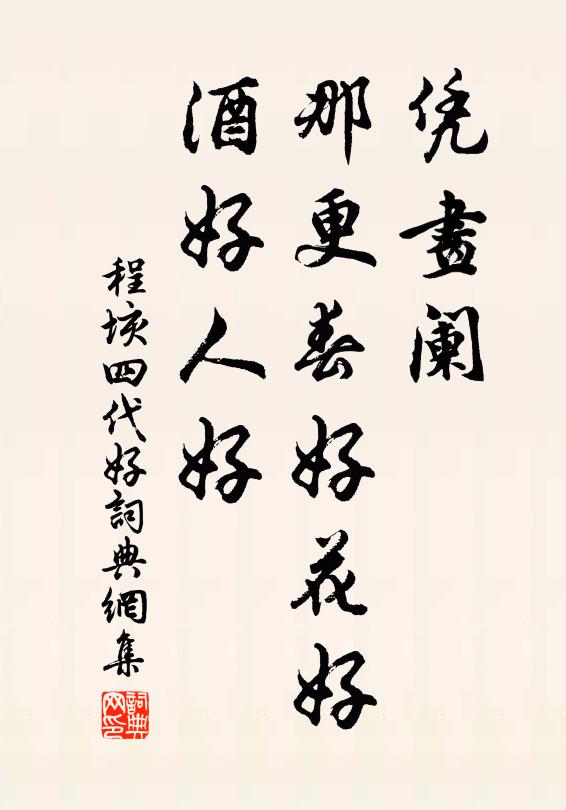 凭畫阑
那更春好花好
酒好人好
程垓四代好詞典網集
詞典网印